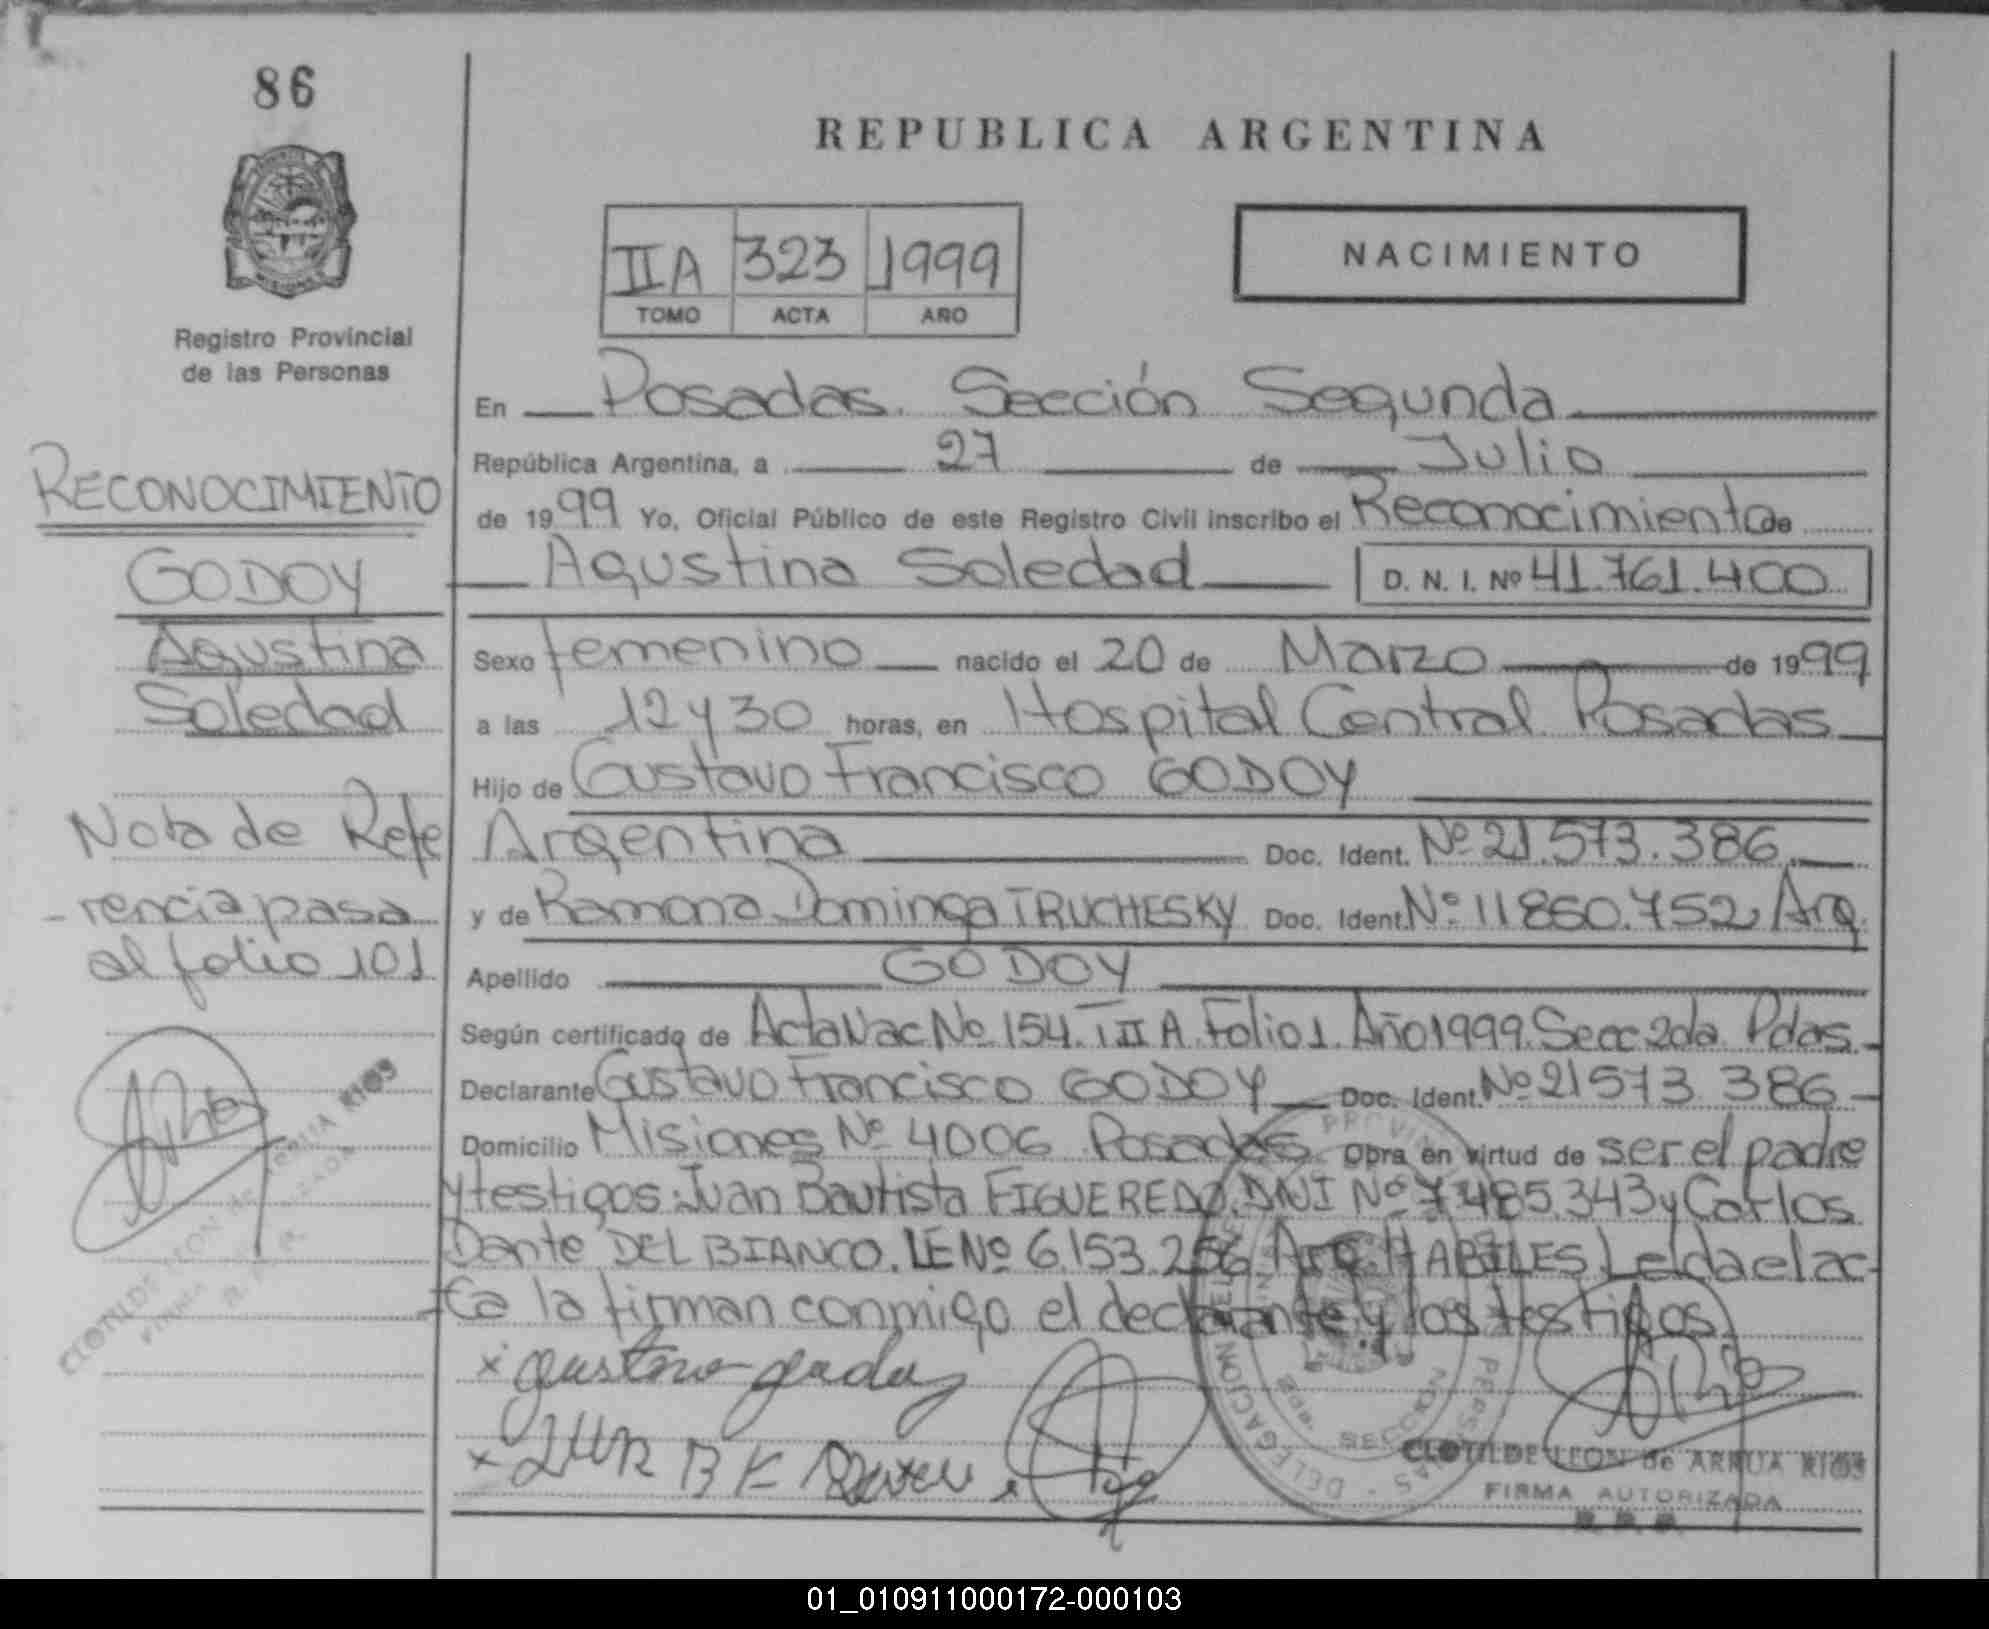 86
REPUBLICA ARGENTINA
IIA 323 1999
TOMO ACTA AÑO
NACIMIENTO
Registro Provincial
de las Personas
RECONOCIMIENTO
GODOY
Agustina
Soledad
Nota de Refe
rencia pasa
al folio 101
CLOTILDE LEON de ARRUA RIOS
FIRMA AUTORIZADA
En Posadas. Sección Segunda
República Argentina, a 27 de Julio
de 1999 Yo, Oficial Público de este Registro Civil inscribo el Reconocimiento de
Agustina Soledad D. N. I. Nº 41.761.400
Sexo femenino nacido el 20 de Marzo de 1999
a las 12 y 30 horas, en Hospital Central Posadas
Hijo de Gustavo Francisco GODOY
Argentina Doc. Ident. Nº 21.573.386
y de Ramona Dominga TRUCHESKY Doc. Ident. Nº 11860.752 Arg.
Apellido GODOY
Según certificado de Acta Nac No. 154. T II A. Folio 1. Año 1999. Secc 2da Pdas.
Declarante Gustavo Francisco GODOY Doc. Ident. Nº 21573.386
Domicilio Misiones Nº 4006 Posadas Obra en virtud de ser el padre
y testigos: Juan Bautista FIGUEREDO. DNI Nº 7.485.343 y Carlos
Dante DEL BIANCO. LE Nº 6.153.256 Arg. HABILES. Leida el ac
ta la firman conmigo el declarante y los testigos
x gustavo godoy
CLOTILDE LEON de ARRUA RIOS
FIRMA AUTORIZADA
01_010911000172-000103